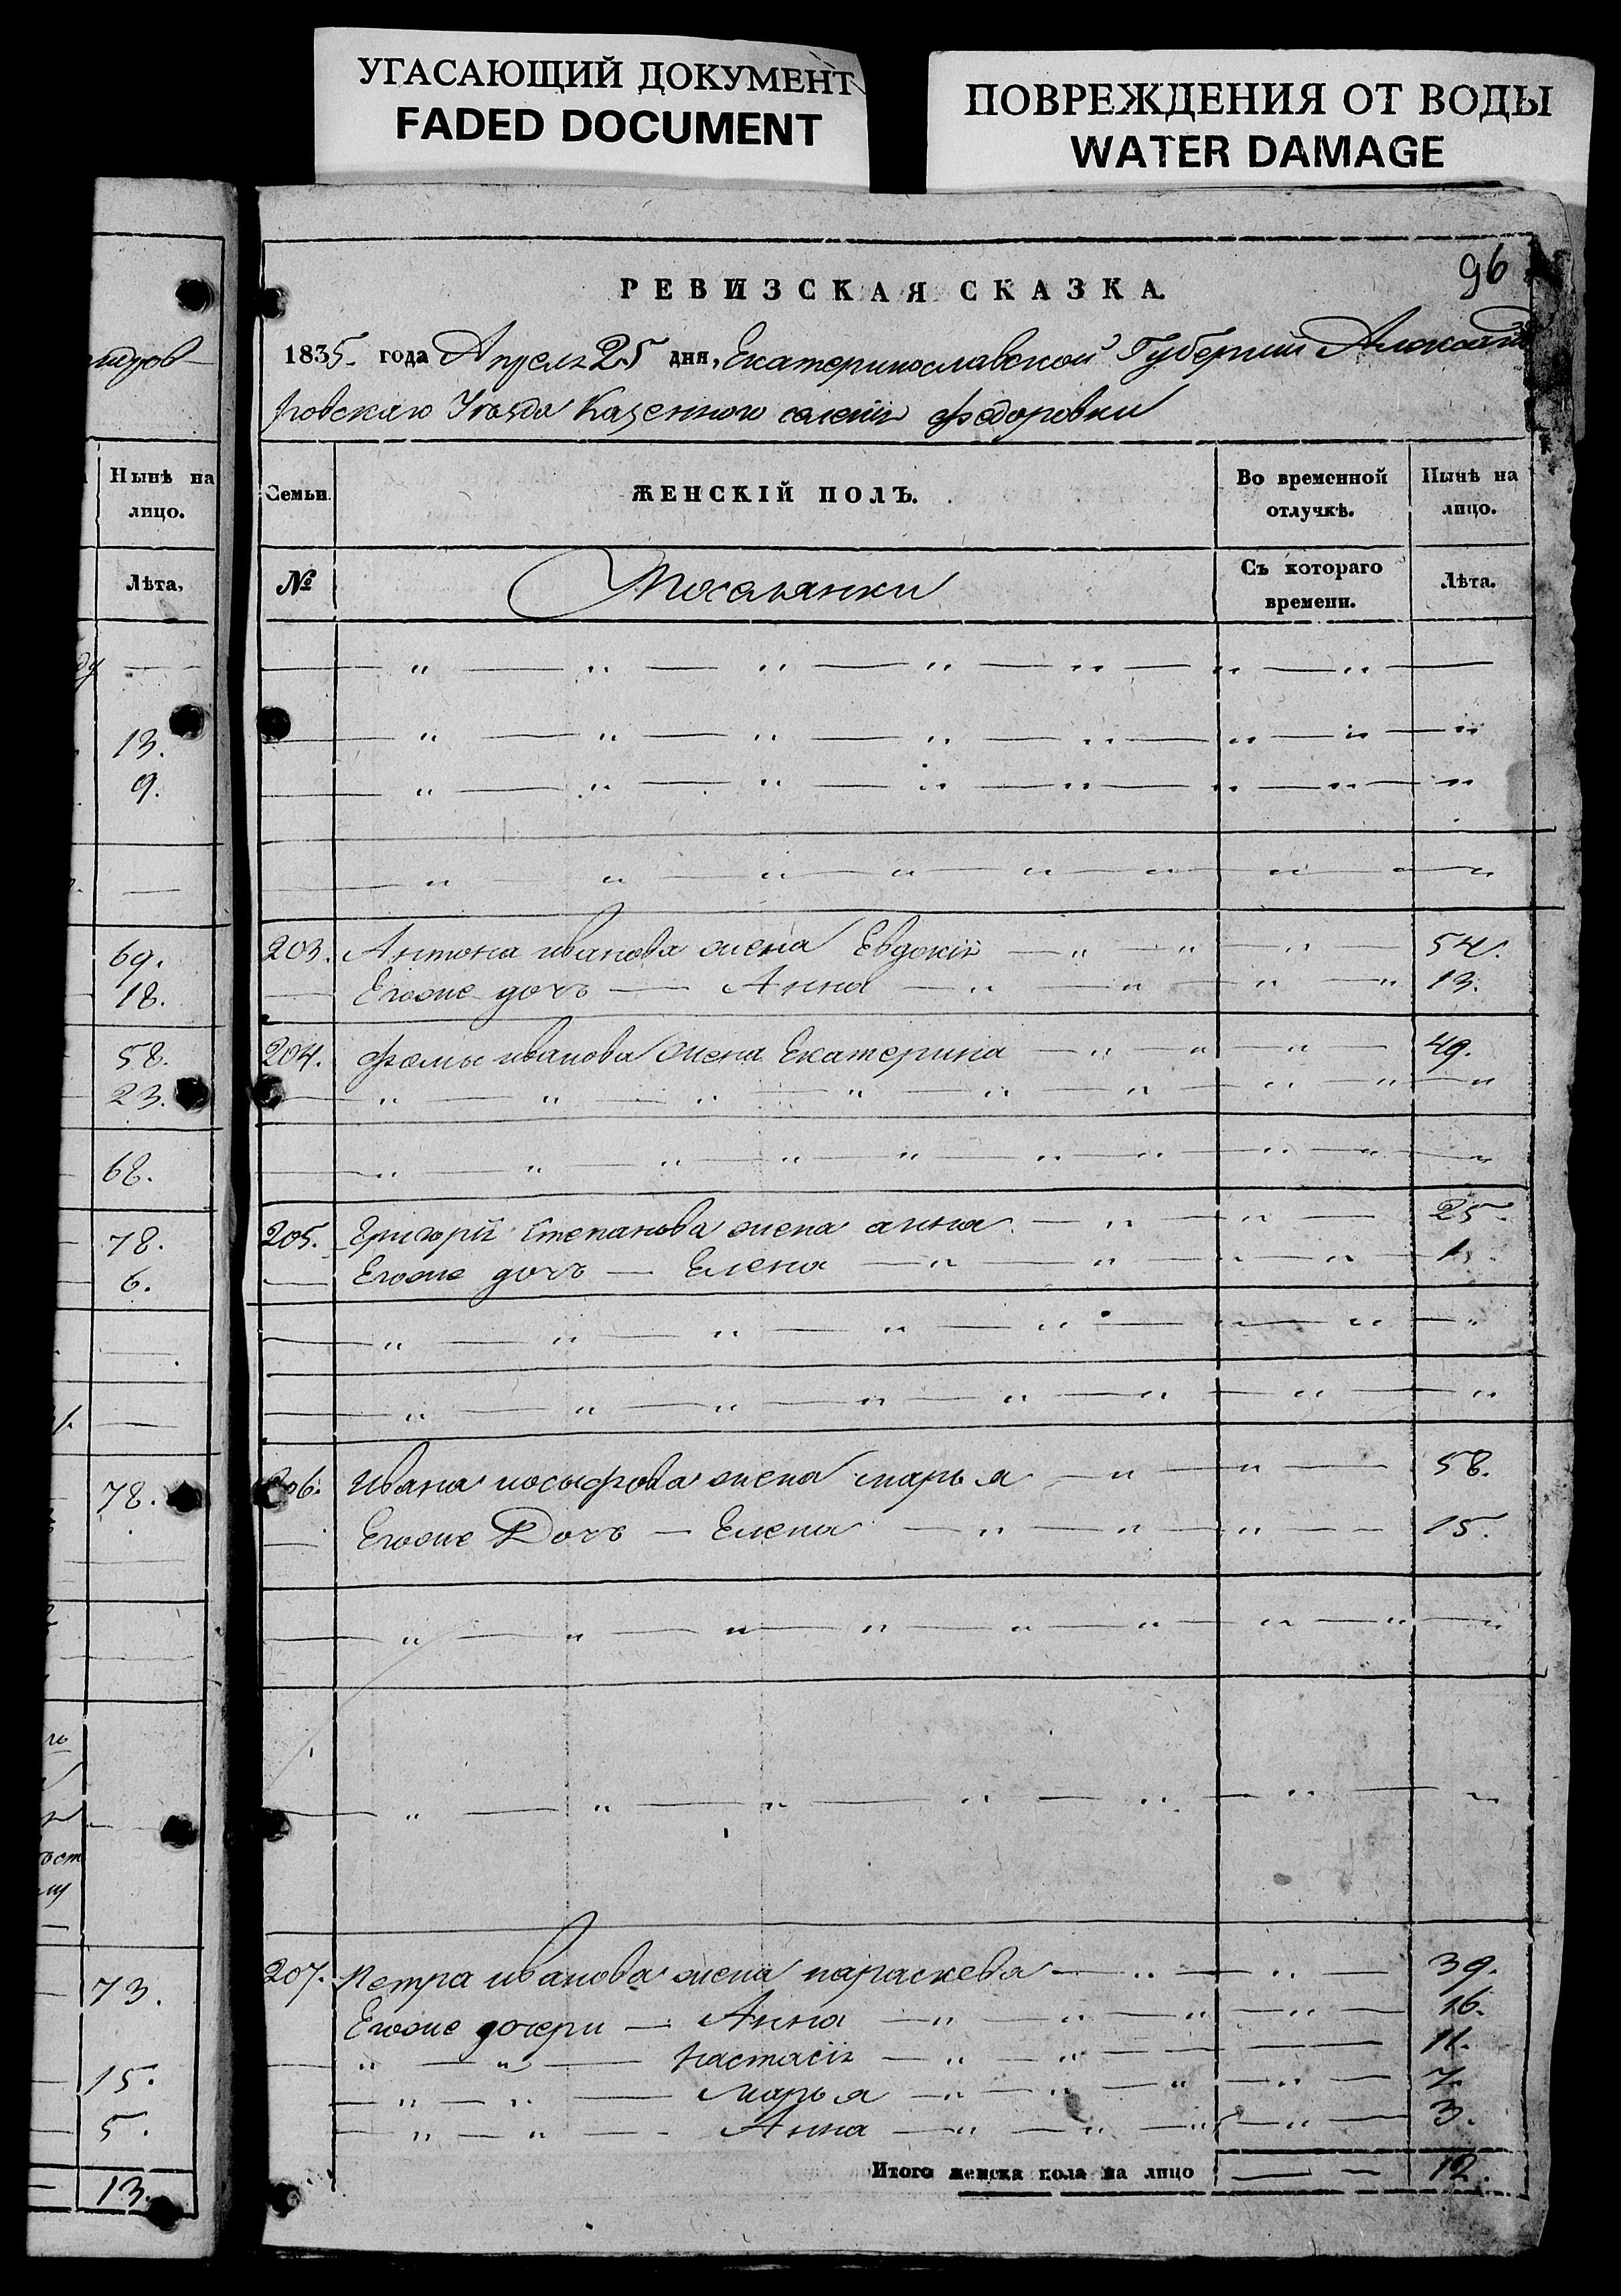 УГАСАЮЩИЙ ДОКУМЕНТ
FADED DOCUMENT
ПОВРЕЖДЕНИЯ ОТ ВОДЫ
WATER DAMAGE
ндров
Нынѣ на
лицо.
Лѣта,
13.
9.
69.
18.
58.
23.
68.
78.
6.
78.
73.
15.
5.
13.
96
РЕВИЗСКАЯ СКАЗКА.
1835. года Апреля 25 дня, Екатеринославской Губернии Александ
ровскаго Уезда Казенного селенія федоровки
Семьи.
ЖЕНСКІЙ ПОЛЪ.
Во временной
отлучкѣ.
Нынѣ на
лицо.
№
Поселянки
Съ котораго
времени.
Лѣта.
203. Антона иванова жена Евдокія 54.
Егоже дочь — Анна 13.
204. фомы иванова жена Екатерина 49.
205. Григорія Степанова жена анна 25.
Егоже дочь — Елена 1.
206. Ивана иосыфова жена марья 58.
Егоже Дочь — Елена 15.
207. Петра иванова жена параскева 39.
Егоже дочери — Анна 16.
" — " — Настасія 11.
" — " — марья 7.
" — " — Анна 3.
Итого женска пола на лицо 12.